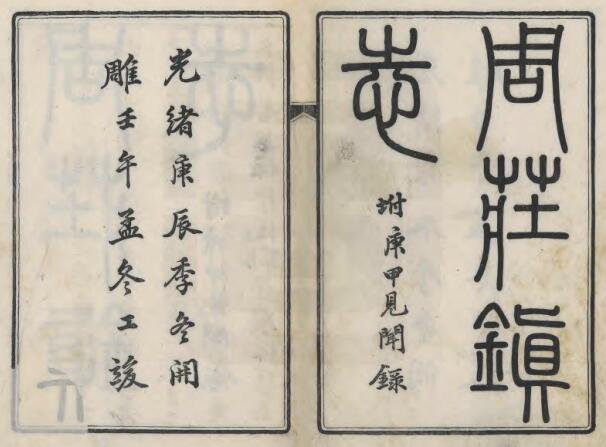 周莊鎮
志
坿庚甲見聞錄
光緒庚辰季冬開
雕壬午孟冬工竣